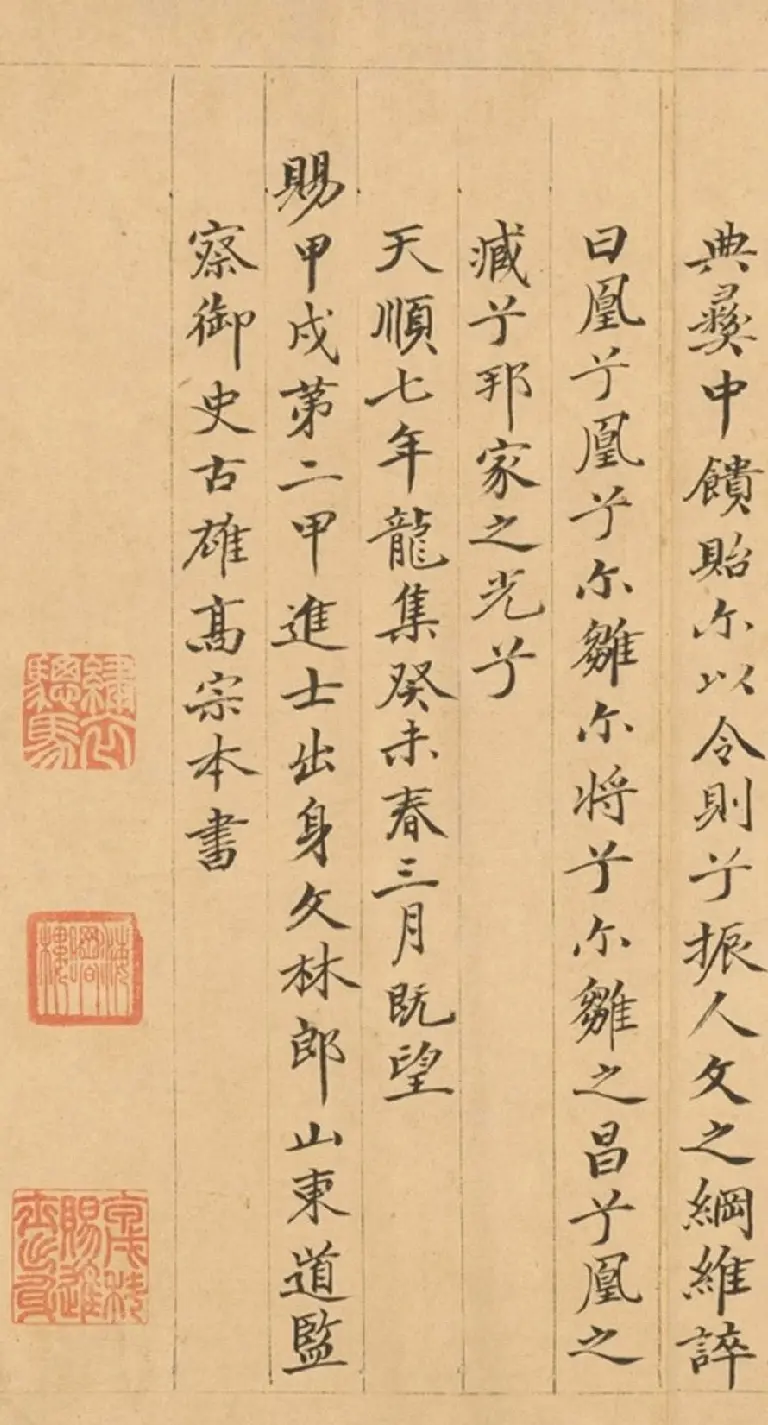 典彛中饋貽尓以令則兮振人文之綱維誶
曰凰兮凰兮尓雛尓将兮尓雛之昌兮凰之
臧兮邦家之光兮
天順七年龍集癸未春三月既望
賜甲戌第二甲進士出身文林郎山東道監
察御史古雄髙宗本書
繡衣驄馬
戌科賜進